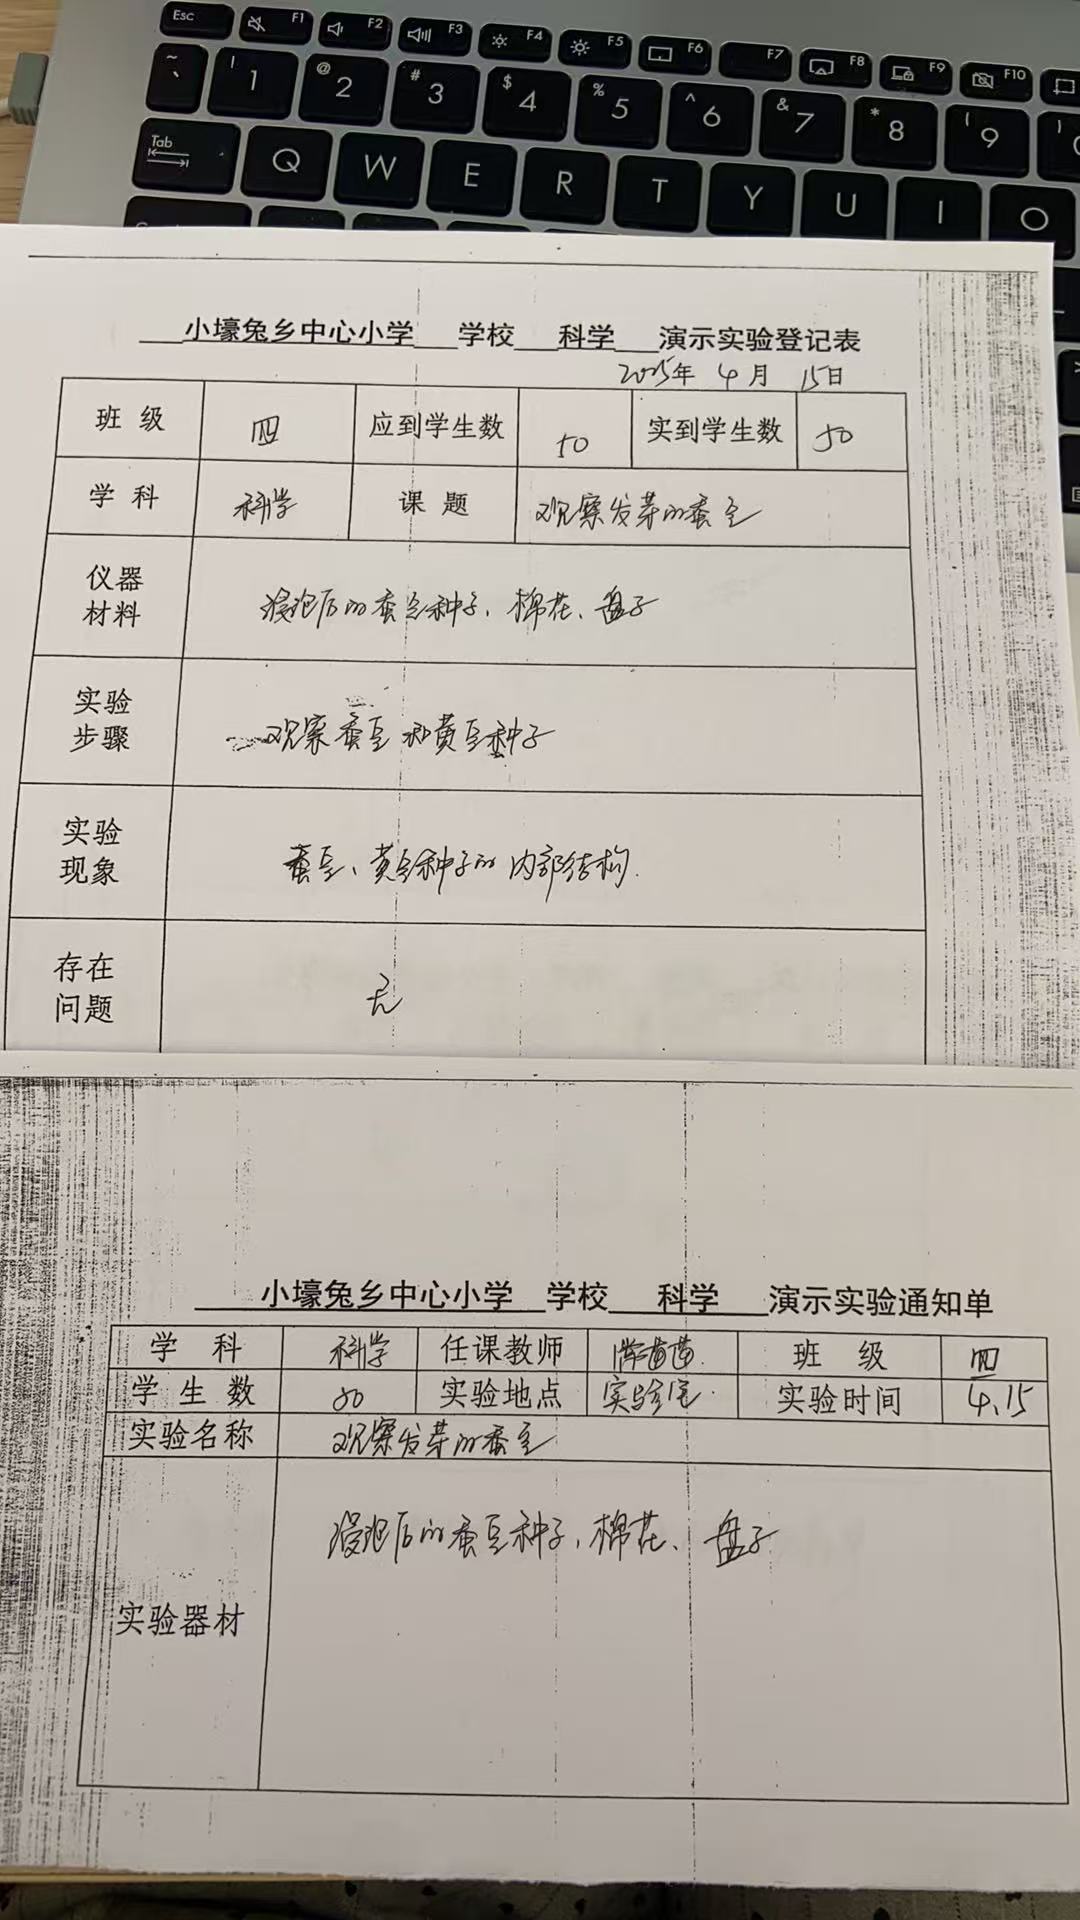 Esc F1 F2 F3 F4 F5 F6 F7 F8 F9 F10
~ ` ! 1 @ 2 # 3 $ 4 % 5 ^ 6 & 7 * 8 ( 9 )
Tab Q W E R T Y U I O
小壕兔乡中心小学 学校 科学 演示实验登记表
2025年 4月 15日
班级 四 应到学生数 50 实到学生数 50
学科 科学 课题 观察发芽的蚕豆
仪器材料 浸泡后的蚕豆种子、棉花、盘子
实验步骤 观察蚕豆和黄豆种子
实验现象 蚕豆、黄豆种子的内部结构.
存在问题 无
小壕兔乡中心小学 学校 科学 演示实验通知单
学科 科学 任课教师 班级 四
学生数 50 实验地点 实验室 实验时间 4.15
实验名称 观察发芽的蚕豆
实验器材 浸泡后的蚕豆种子、棉花、盘子